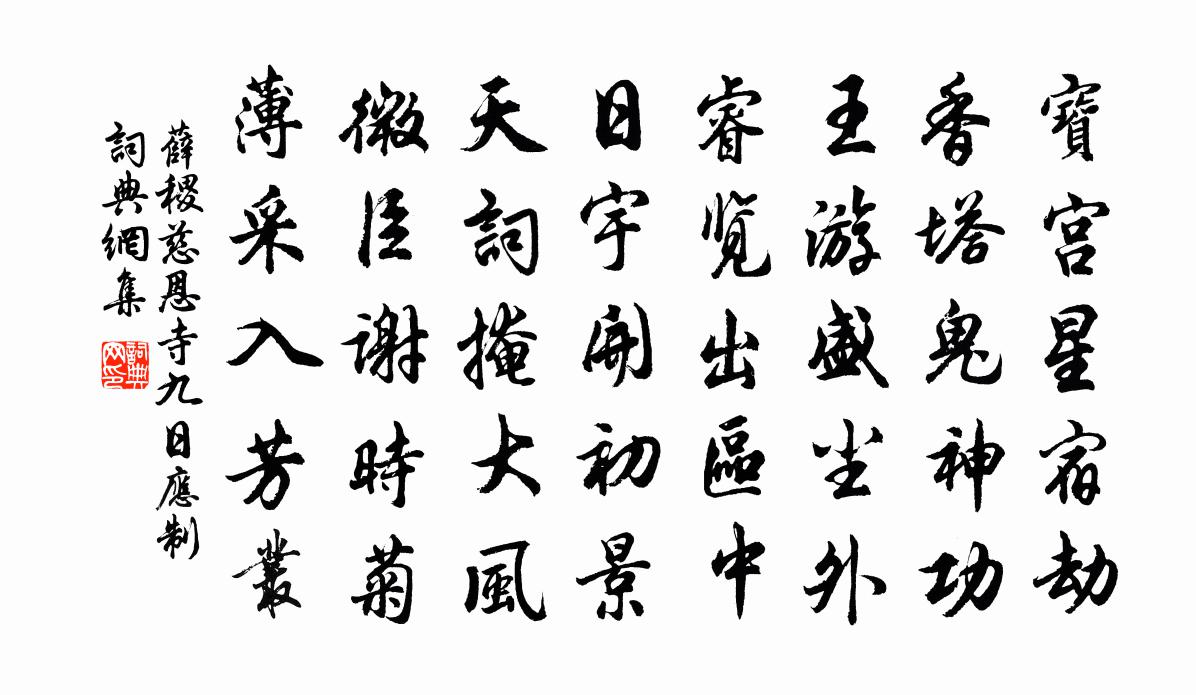 寶宮星宿劫
香塔鬼神功
王游盛尘外
睿览出區中
日宇開初景
天詞掩大風
微臣谢時菊
薄采入芳叢
薛稷慈恩寺九日應制
詞典網集
詞典网印